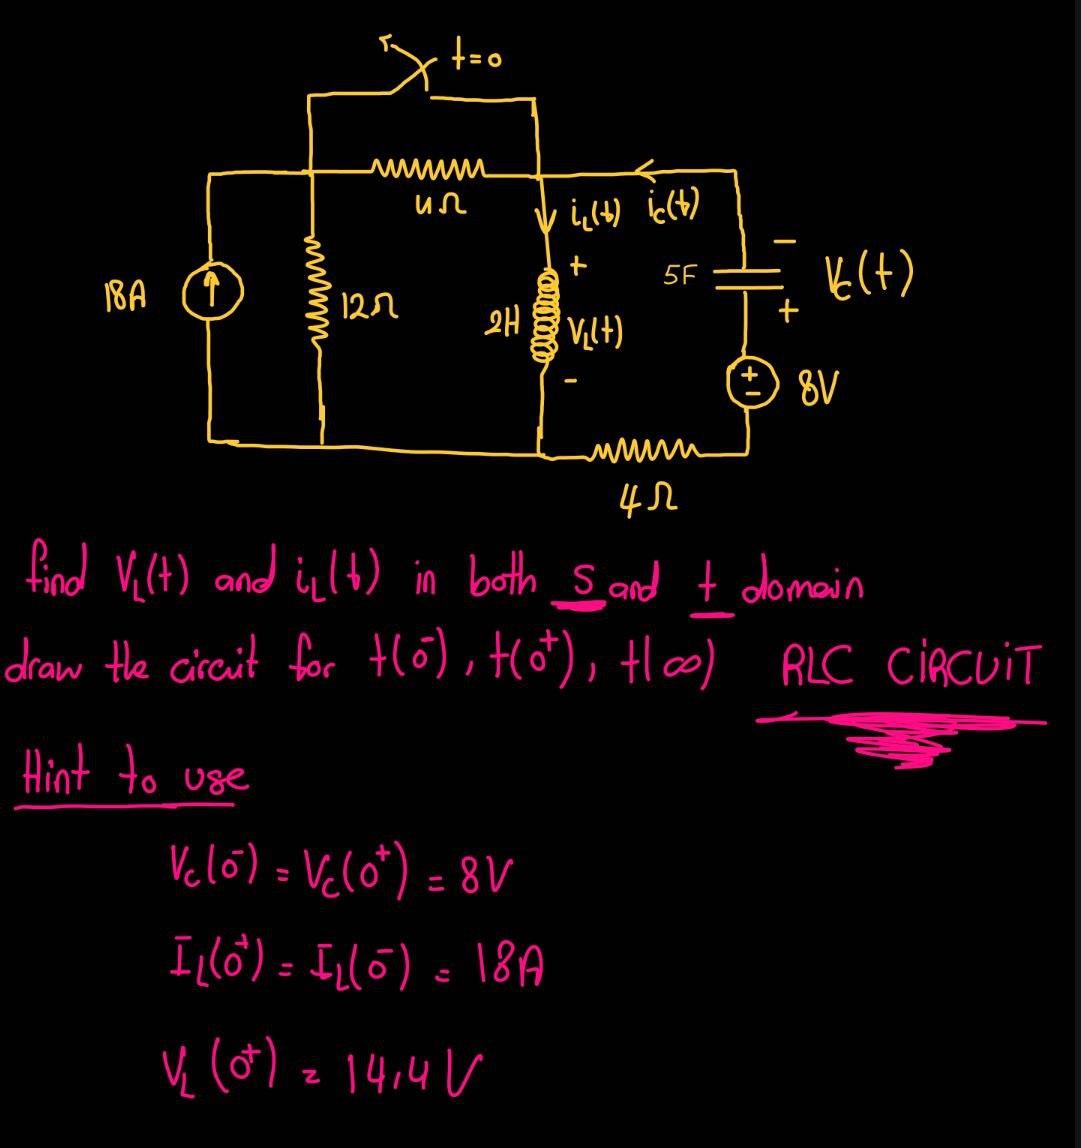 t=0
4Ω
iL(t) iC(t)
18A
12Ω
2H
+
VL(t)
-
5F
-
VC(t)
+
+
-
8V
4Ω
find VL(t) and iL(t) in both s and t domain
draw the circuit for t(0-), t(0+), t(∞) RLC CiRCUiT
Hint to use
VC(0-) = VC(0+) = 8V
IL(0+) = IL(0-) = 18A
VL(0+) = 14,4 V